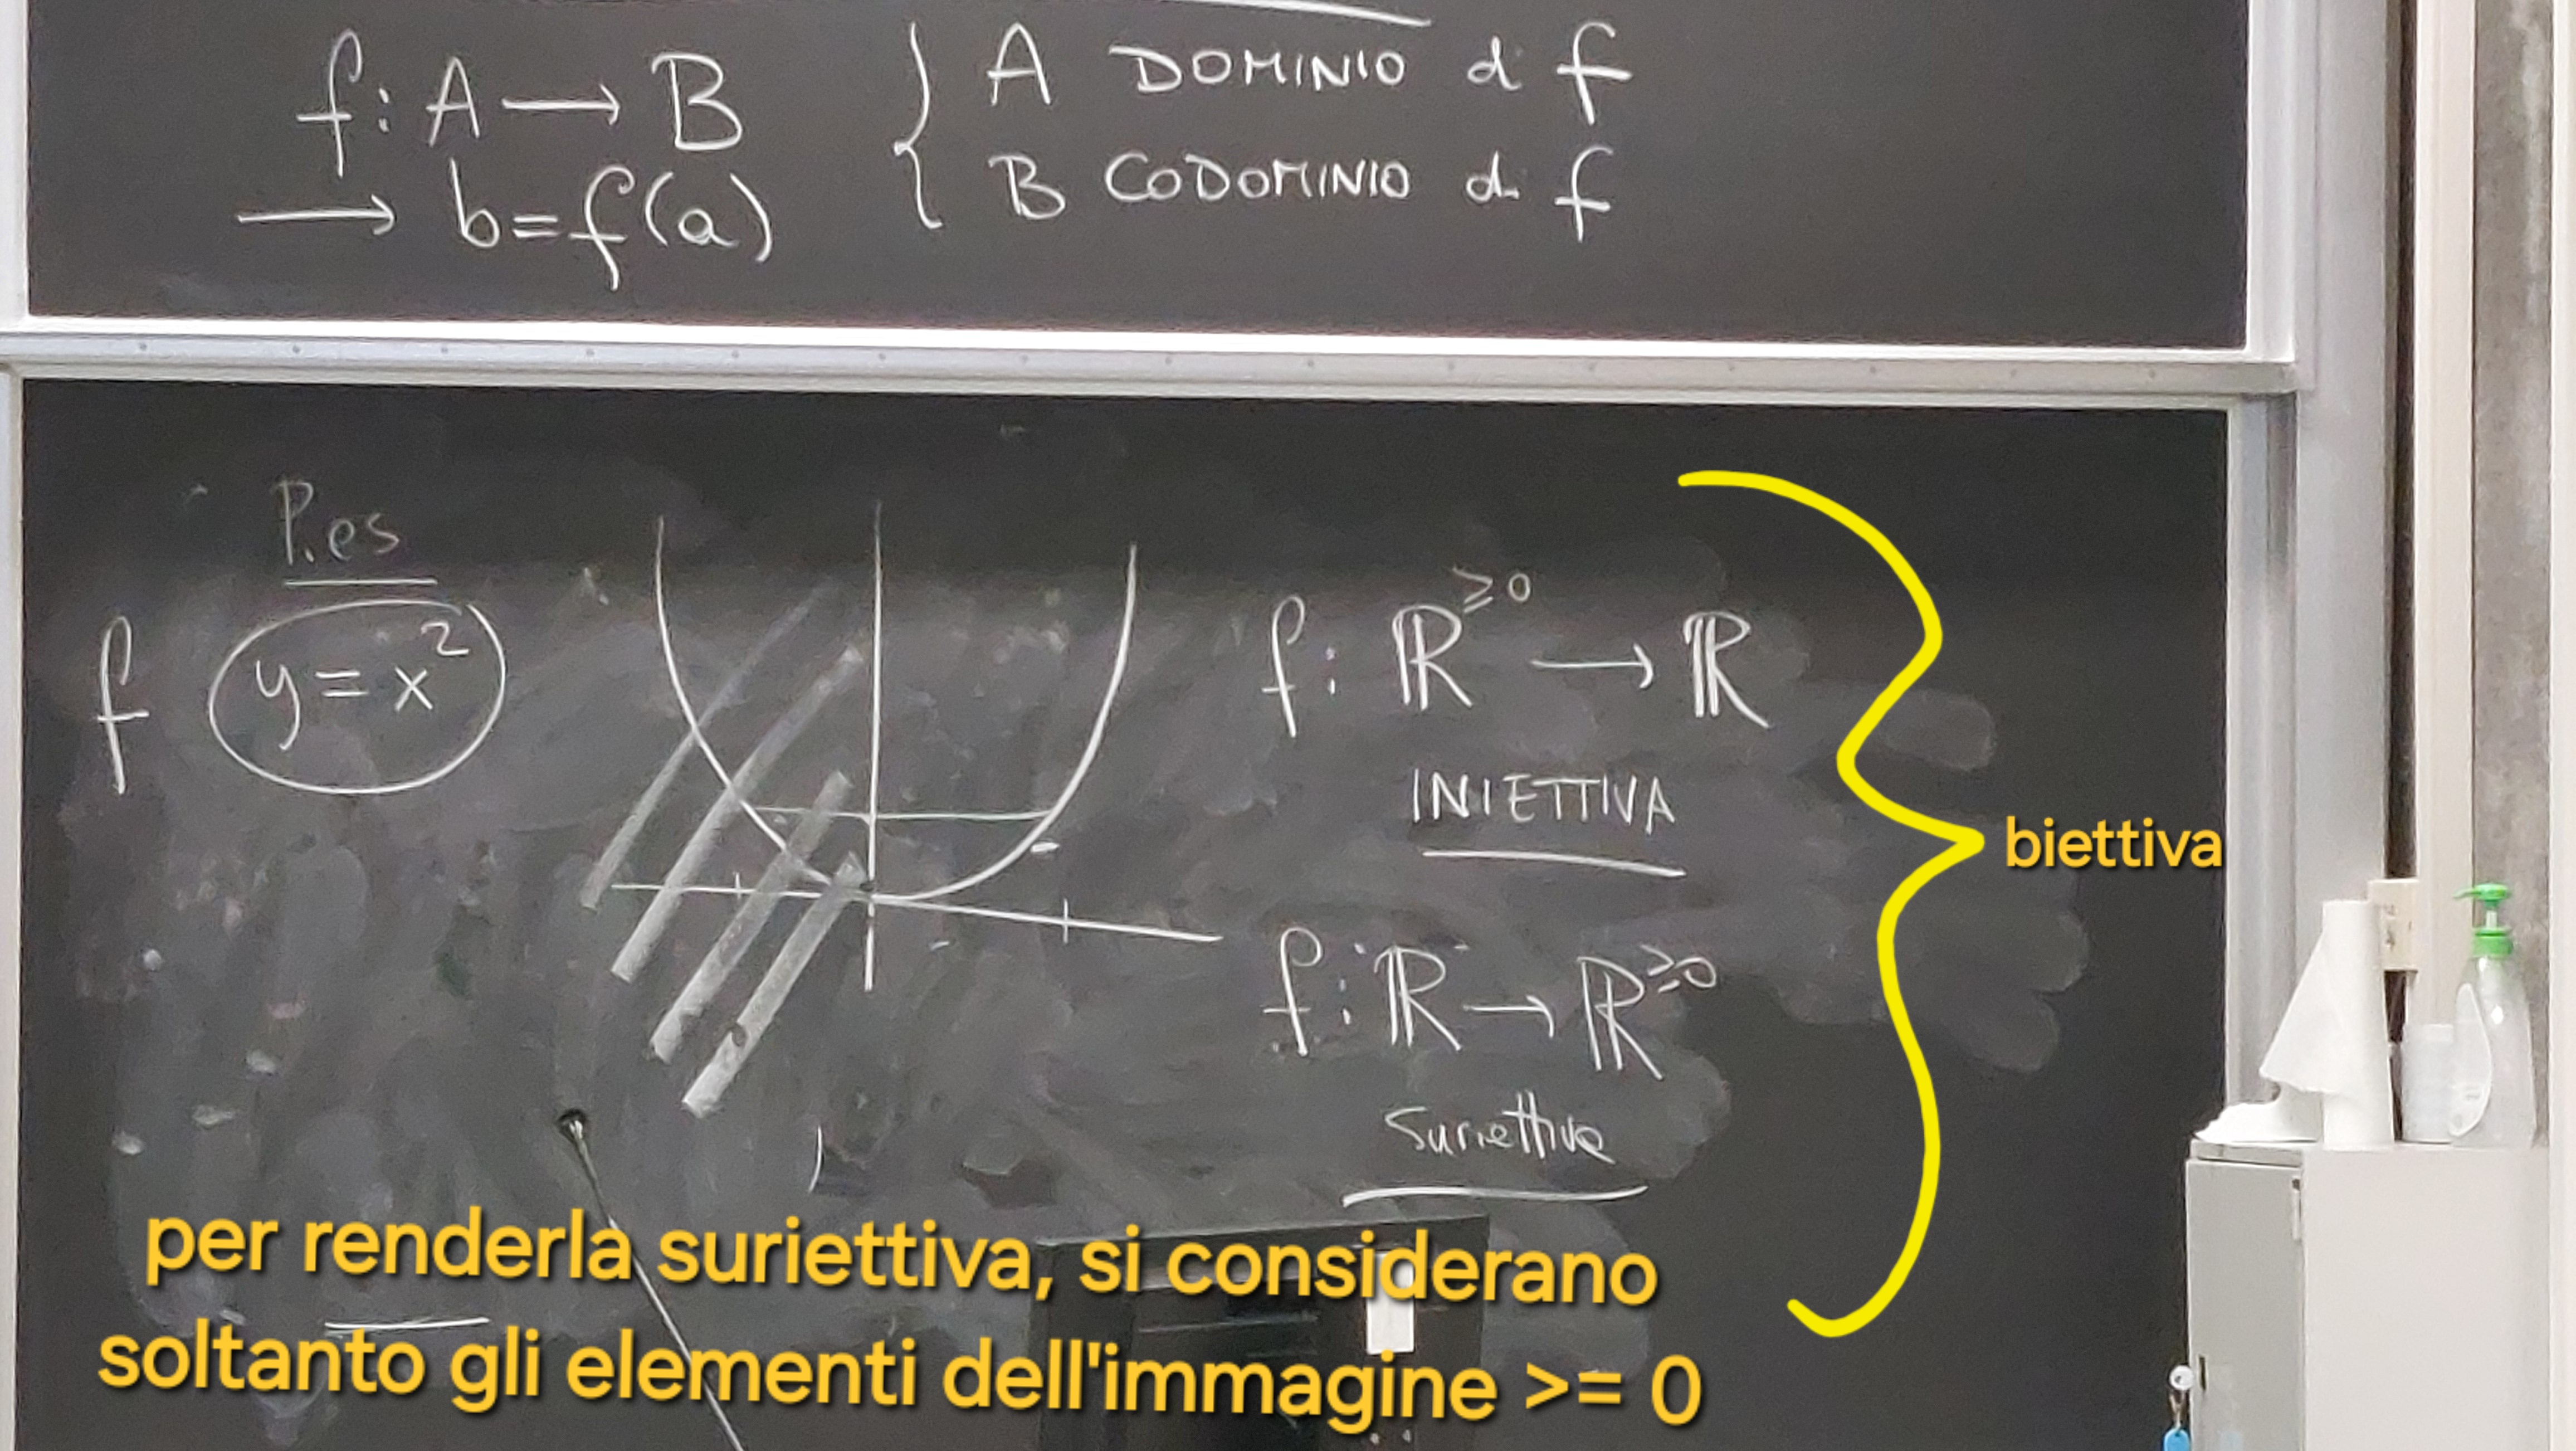 f: A → B { A DOMINIO di f
→ b=f(a) { B CODOMINIO di f
P.es
f y = x²
f: ℝ^≥0 → ℝ
INIETTIVA
biettiva
f: ℝ → ℝ^≥0
Suriettiva
per renderla suriettiva, si considerano
soltanto gli elementi dell'immagine >= 0